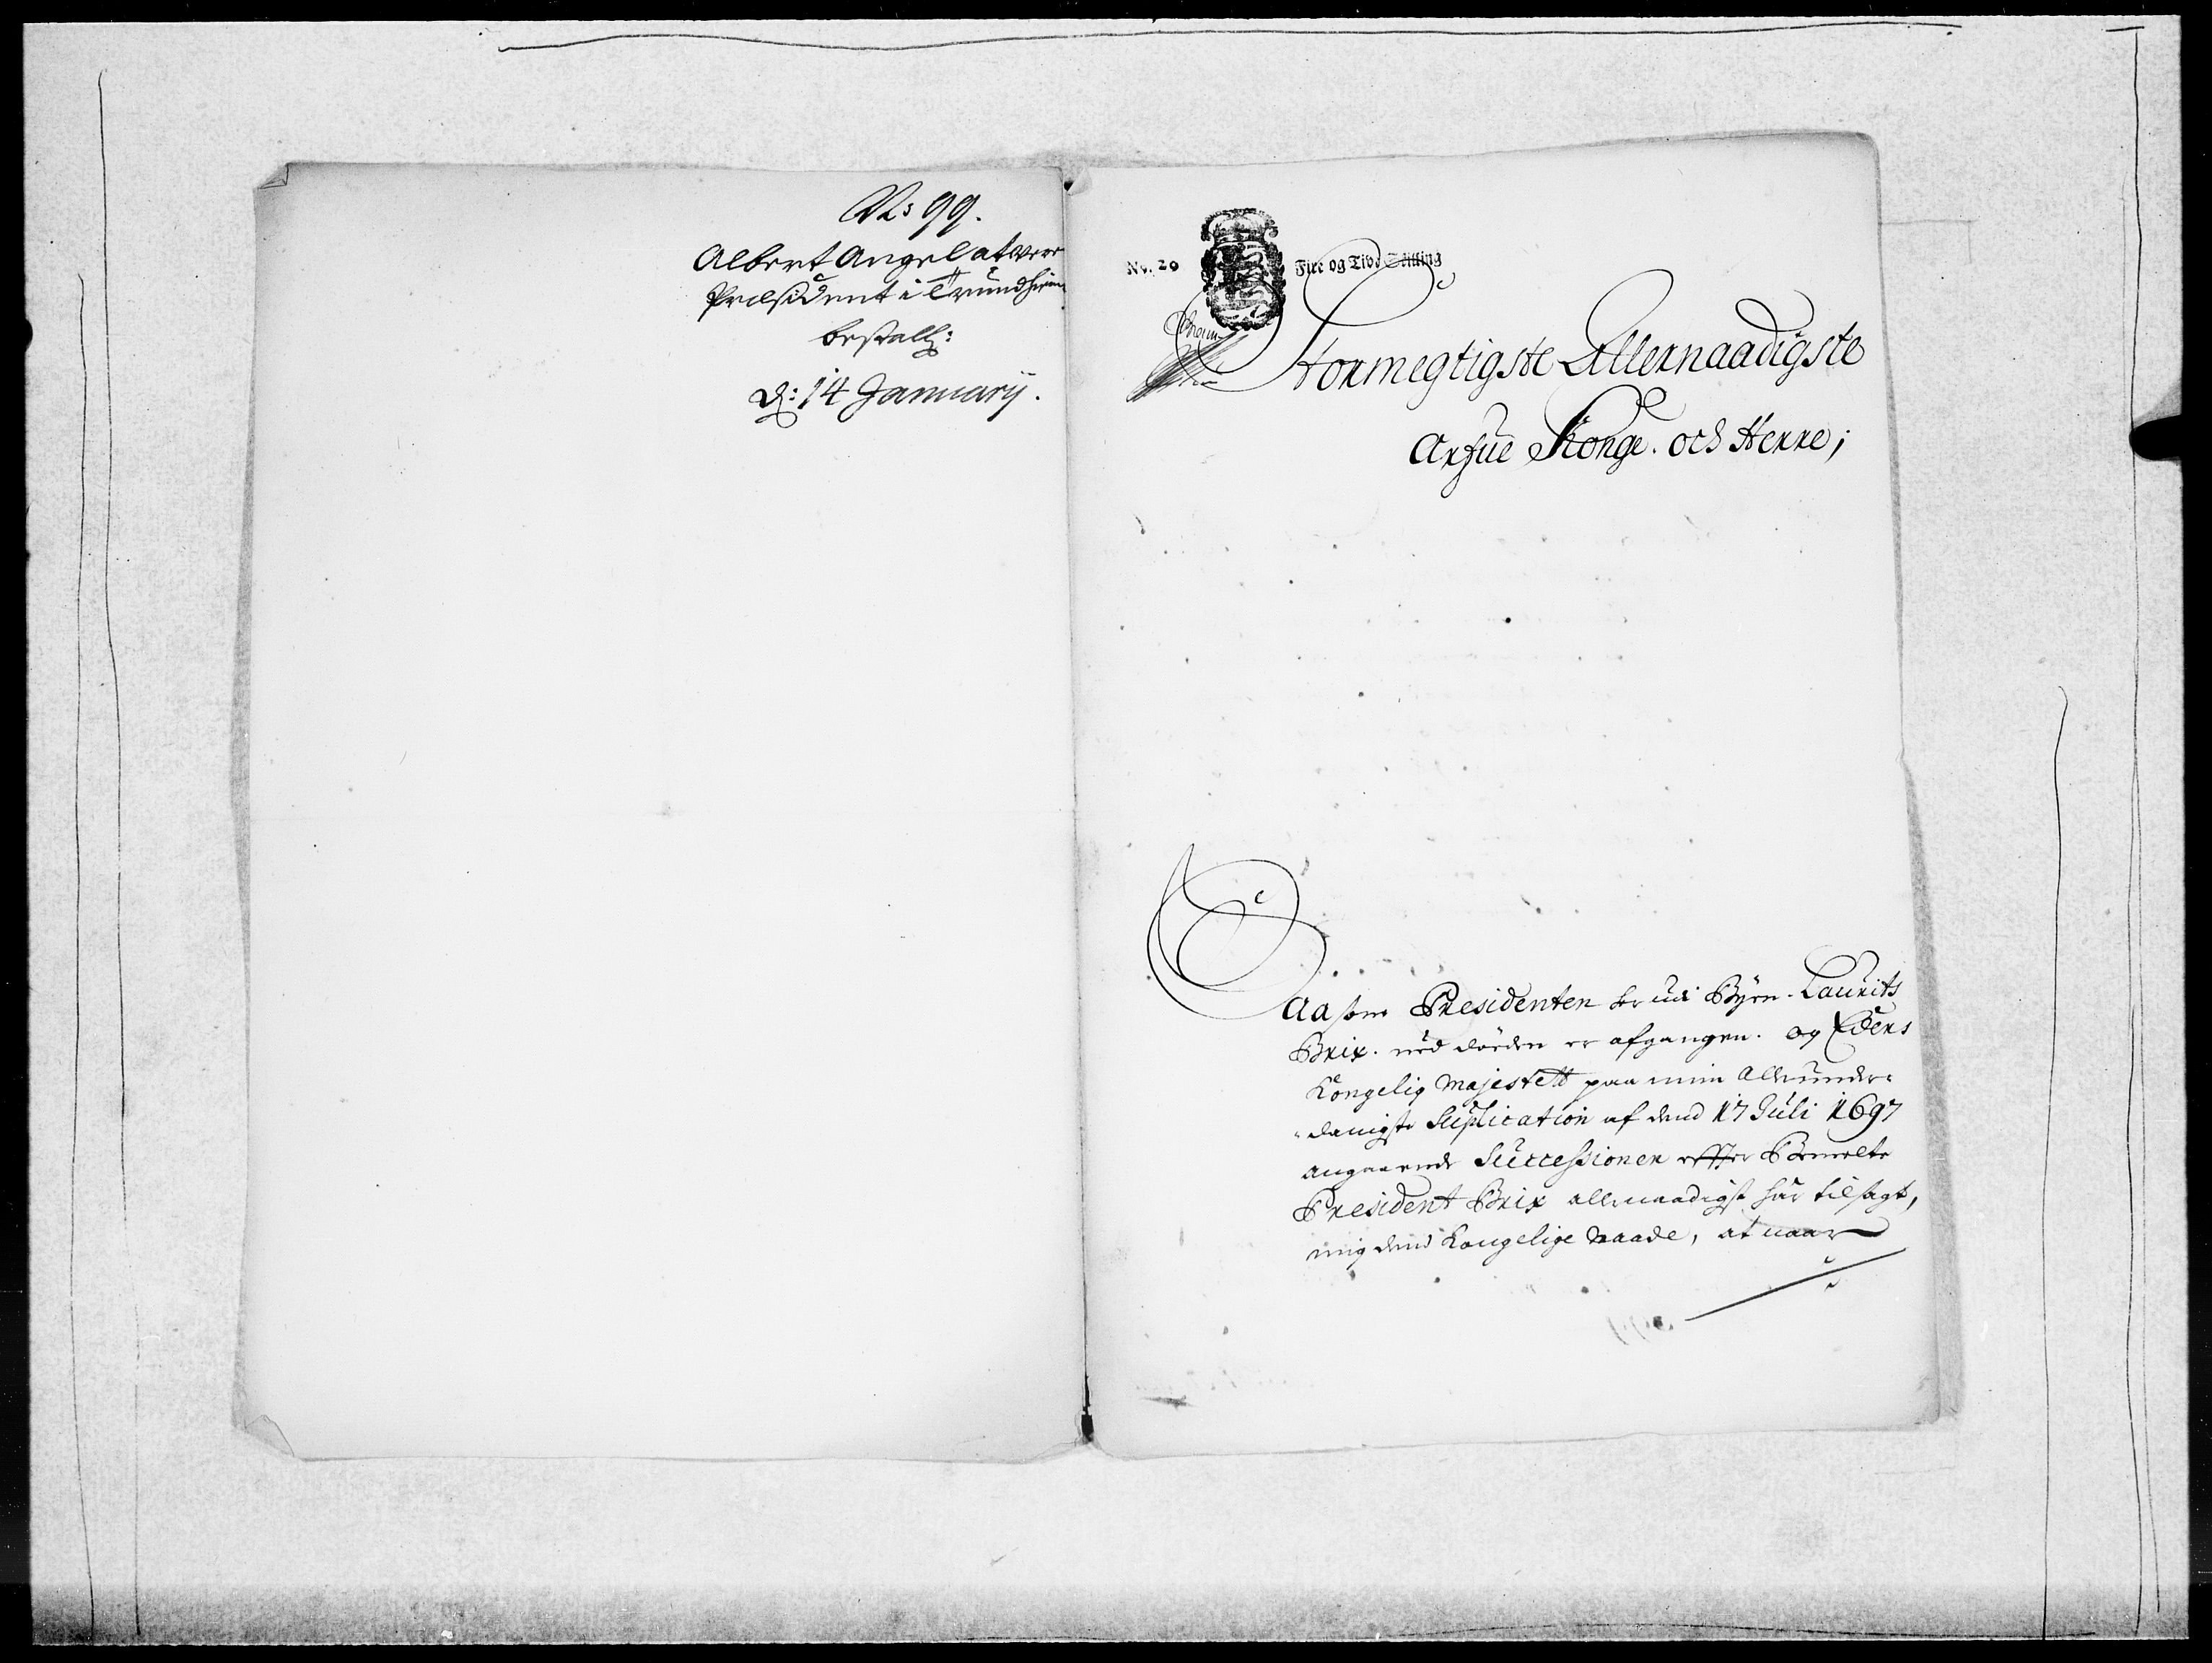 No 99.
Albert Angel at være
Præsident i Trundhiem
bestall:
d: 14 January.
No. 20 Fire og Tive Skilling
Stormegtigste Allernaadigste
Arfue Konge. och Herre;
Saasom Presidenten her udi Byen. Laurits
Brix. ved döeden er afgangen. og Eders
Kongelig Majestett paa min Allerunder-
-danigste Suplication af dend 17 Juli 1697
angaaende Successionen effter Bemelte
President Brix allernaadigst har tilsagt,
mig dend Kongelige Naade, at naar